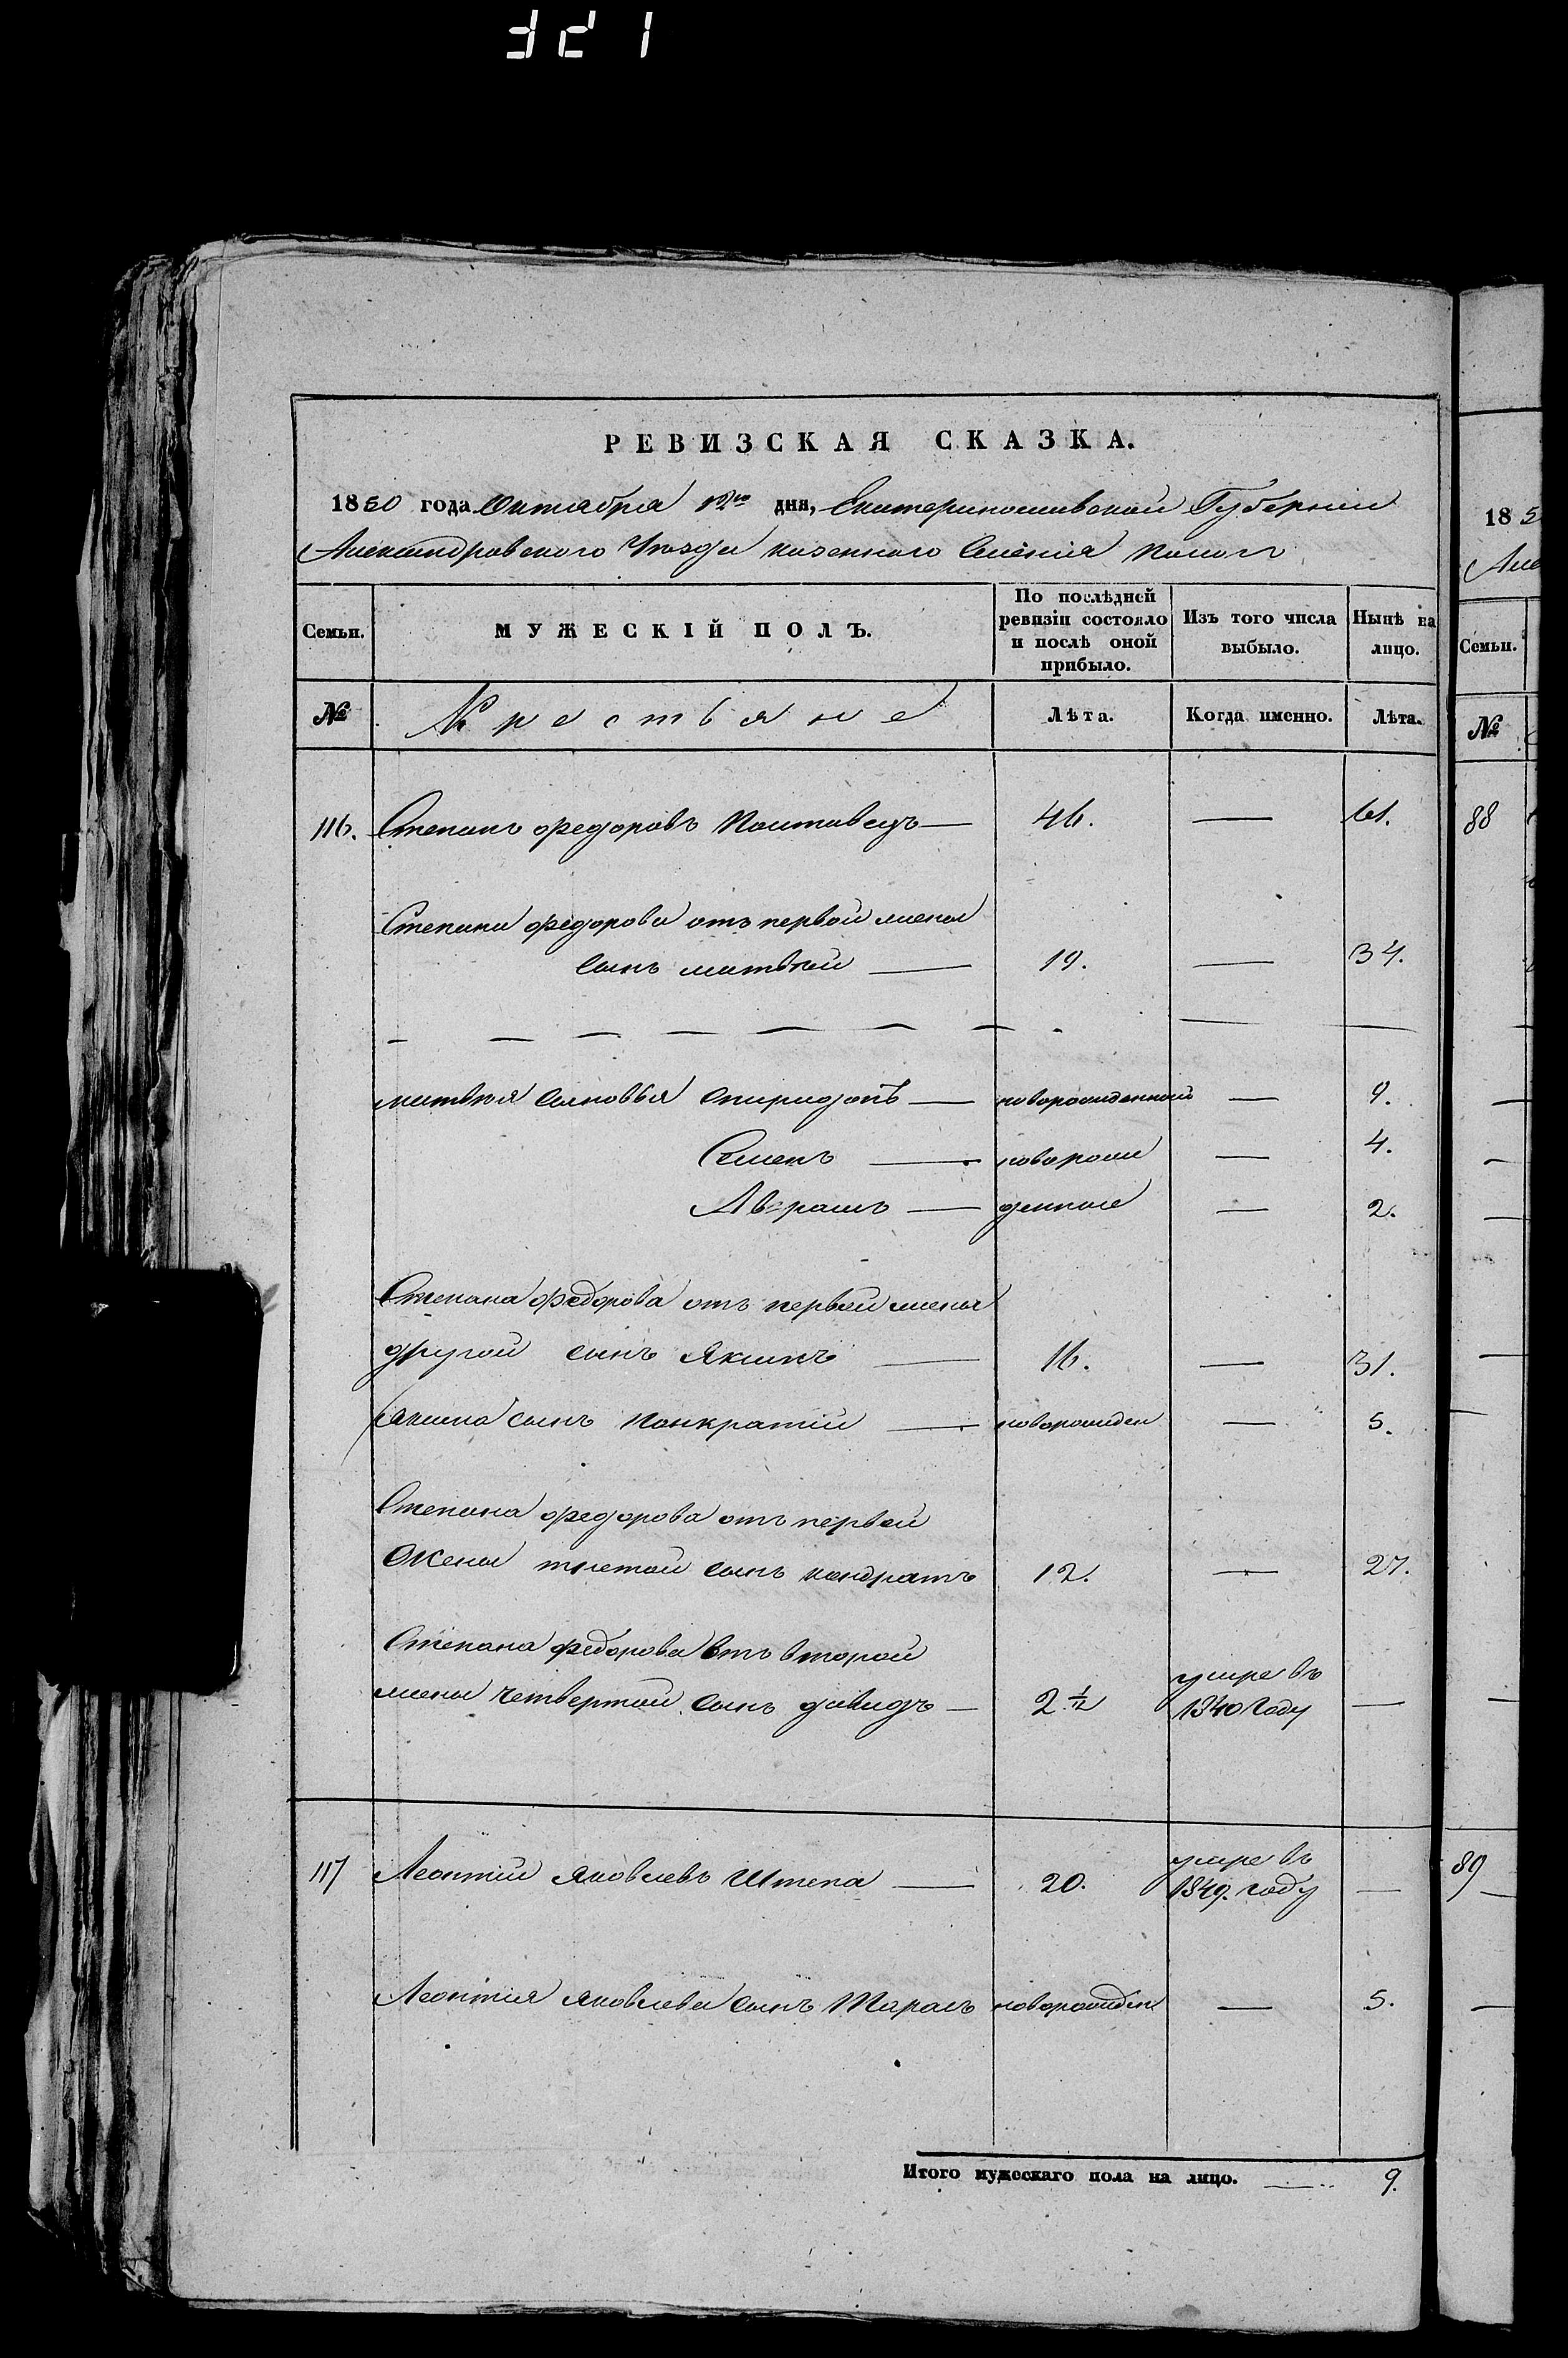 321
РЕВИЗСКАЯ СКАЗКА.
1850 года Октября 12го дня, Екатеринославской Губернии
Александровского Уезда казенного Селения Пологъ
Семьи. МУЖЕСКІЙ ПОЛЪ. По послѣдней ревизіи состояло и послѣ оной прибыло. Изъ того числа выбыло. Нынѣ на лицо.
№ Крестьяне Лѣта. Когда именно. Лѣта.
116. Степанъ федоровъ Полтавецъ — 46. — 61.
Степана федорова отъ первой жены
сынъ матвей — 19. — 34.
матвея сыновья Спиридонъ — новорожденный — 9.
Семенъ — новорож — 4.
Аврамъ — денные — 2.
Степана федорова отъ первой жены
другой сынъ Якимъ — 16. — 31.
Якима сынъ Панкратий — новорожден — 5.
Степана федорова отъ первой
Жены третой сынъ кондратъ 12. — 27.
Степана федорова отъ второй
жены четвертой сынъ давидъ — 2 1/12 умре въ 1840 году —
117 Леонтий яковлевъ Штепа — 20. умре въ 1849. году —
Леонтия яковлева сынъ Тарасъ новорожден — 5.
Итого мужескаго пола на лицо. — 9.
185
Але
Семьи.
№
88
89